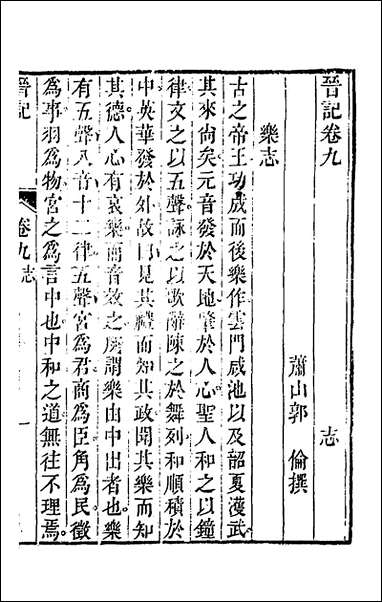 晉記卷九　　　　　　　　　志
蕭山郭　倫撰
樂志
古之帝王功成而後樂作雲門咸池以及韶夏濩武
其來尙矣元音發於天地肇於人心聖人和之以鐘
律文之以五聲詠之以歌辭陳之於舞列和順積於
中英華發於外故曰見其禮而知其政聞其樂而知
其德人心有哀樂而音效之所謂樂由中出者也樂
有五聲八音十二律五聲宮爲君商爲臣角爲民徵
爲事羽爲物宮之爲言中也中和之道無往不理焉
晉記
卷九志
一